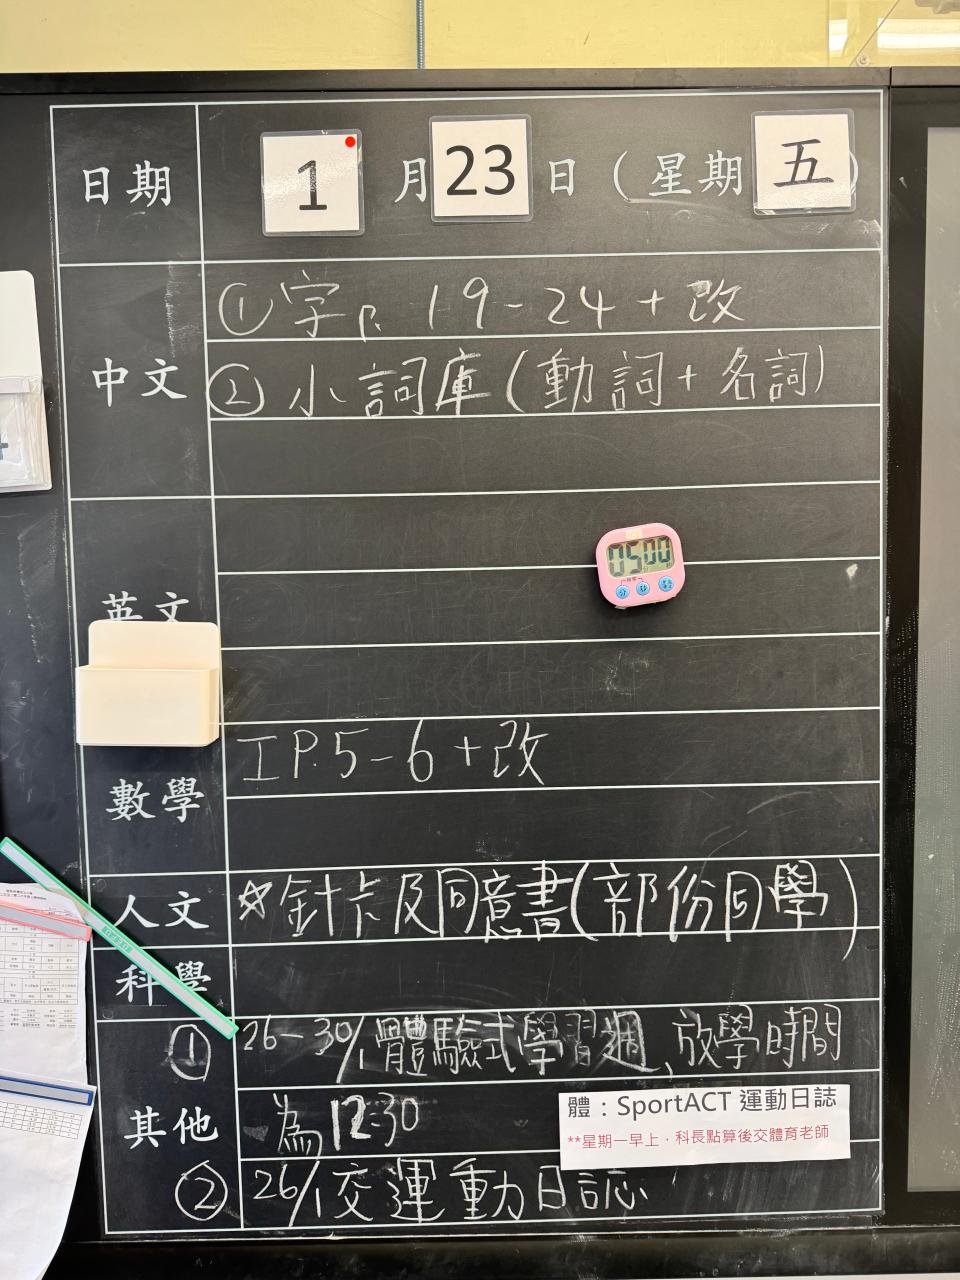 日期 1 月 23 日 (星期 五 )
中文
① 字 P. 19-24 + 改
② 小詞庫 (動詞 + 名詞)
05 00
分 秒
數學
工 P. 5-6 + 改
人文
☆ 針卡及同意書 (部份同學)
科學
其他
① 26-30/1 體驗式學習週, 放學時間
為 12:30
體：SportACT 運動日誌
**星期一早上，科長點算後交體育老師
② 26/1 交運動日誌